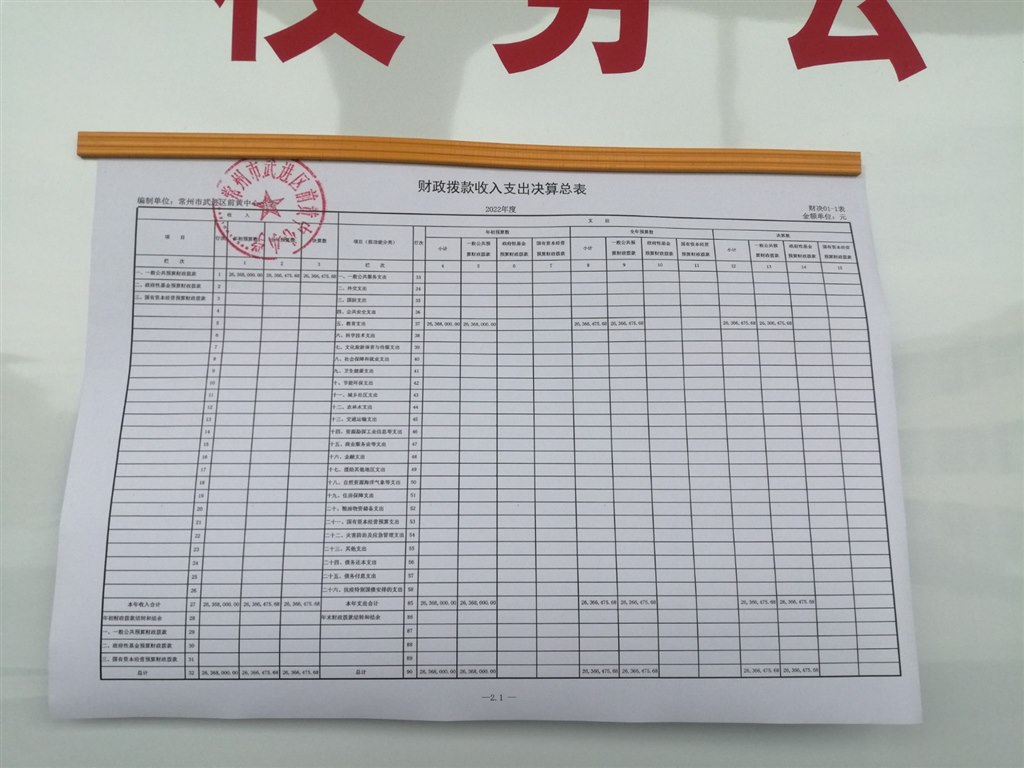 校务公
财政拨款收入支出决算总表
2022年度
财决01-1表
编制单位：常州市武进区前黄中心
金额单位：元
常州市武进区前黄中心
收 入 支 出
项 目 行次 年初预算数 决算数 项目（按功能分类） 行次 年初预算数 全年预算数 决算数
小计 一般公共预算财政拨款 政府性基金预算财政拨款 国有资本经营预算财政拨款 小计 一般公共预算财政拨款 政府性基金预算财政拨款 国有资本经营预算财政拨款 小计 一般公共预算财政拨款 政府性基金预算财政拨款 国有资本经营预算财政拨款
栏 次 1 2 3 栏 次 4 5 6 7 8 9 10 11 12 13 14 15
一、一般公共预算财政拨款 1 26,368,000.00 26,366,475.68 26,366,475.68 一、一般公共服务支出 33
二、政府性基金预算财政拨款 2 二、外交支出 34
三、国有资本经营预算财政拨款 3 三、国防支出 35
4 四、公共安全支出 36
5 五、教育支出 37 26,368,000.00 26,368,000.00 26,366,475.68 26,366,475.68 26,366,475.68 26,366,475.68
6 六、科学技术支出 38
7 七、文化旅游体育与传媒支出 39
8 八、社会保障和就业支出 40
9 九、卫生健康支出 41
10 十、节能环保支出 42
11 十一、城乡社区支出 43
12 十二、农林水支出 44
13 十三、交通运输支出 45
14 十四、资源勘探工业信息等支出 46
15 十五、商业服务业等支出 47
16 十六、金融支出 48
17 十七、援助其他地区支出 49
18 十八、自然资源海洋气象等支出 50
19 十九、住房保障支出 51
20 二十、粮油物资储备支出 52
21 二十一、国有资本经营预算支出 53
22 二十二、灾害防治及应急管理支出 54
23 二十三、其他支出 55
24 二十四、债务还本支出 56
25 二十五、债务付息支出 57
26 二十六、抗疫特别国债安排的支出 58
本年收入合计 27 26,368,000.00 26,366,475.68 26,366,475.68 本年支出合计 85 26,368,000.00 26,368,000.00 26,366,475.68 26,366,475.68 26,366,475.68 26,366,475.68
年初财政拨款结转和结余 28 年末财政拨款结转和结余 86
一、一般公共预算财政拨款 29 87
二、政府性基金预算财政拨款 30 88
三、国有资本经营预算财政拨款 31 89
总计 32 26,368,000.00 26,366,475.68 26,366,475.68 总计 90 26,368,000.00 26,368,000.00 26,366,475.68 26,366,475.68 26,366,475.68 26,366,475.68
—2.1 —